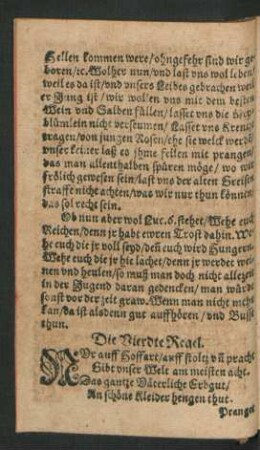 Hellen kommen were/ohngefehr sind wir ge
boren/ꝛc. Wolher nun/vnd last vns wol leben/
weil es da ist/vnd vnsers Leibes gebrachen weil
er Jung ist/wir wollen vns mit dem besten
Wein vnd Salben füllen/lasset vns die
blümlein nicht verseumen/Lasset vns Krentze
tragen/von jungen Rosen/ehe sie welck werden
vnser keiner laß es jhme feilen mit prangen/
das man allenthalben spüren möge/wo wir
frölich gewesen sein/last vns der alten Greisen
straffe nicht achten/was wir nur thun können
das sol recht sein.
Ob nun aber wol Luc. 6. stehet/Wehe euch
Reichen/denn jr habt ewren Trost dahin. We-
he euch die jr voll seyd/deñ euch wird Hungern
Wehe euch die jr hie lachet/denn jr werdet wei-
nen vnd heulen/so muß man doch nicht allezeit
in der Jugend daran gedencken/man würde
sonst vor der zeit graw. Wenn man nicht mehr
kan/da ist alsdenn gut auffhören/vnd Busse
thun.
Die Vierdte Regel.
NVr auff Hoffart/auff stoltz vñ pracht
Gibt vnser Welt am meisten acht.
Das gantze Väterliche Erbgut/
An schöne Kleider hengen thut.
Prangen